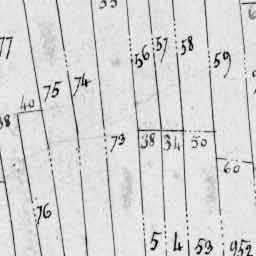 77
56 57 58
59
75 74
40
38
73 38 34 50
60
76
5 4 53 952